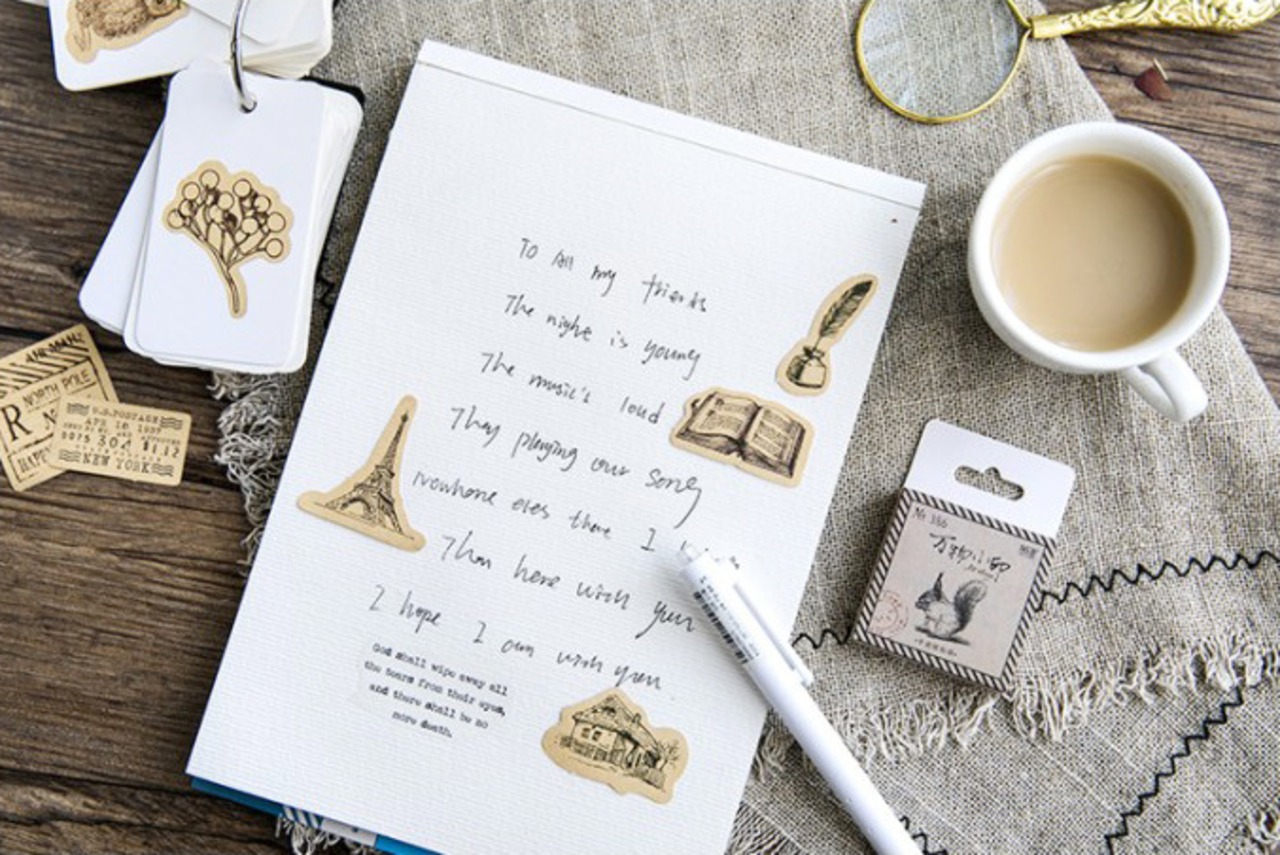 To All my friends
The night is young
The music's loud
They playing our song
Nowhere eles there I
Than here with you
I hope I am with you.
God shall wipe away all
the tears from their eyes,
and there shall be no
more death.
NORTH POLE
U.S. POSTAGE
APR 18 1937
NEW YORK
No 186
万物小印